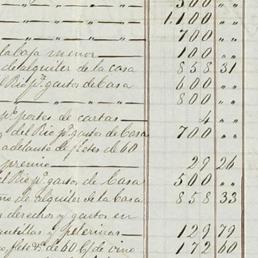 " " " 500 " "
" " " 1,100 " "
" " " 700 " "
la Caja menor 100 " "
de alquiler de la casa 858 31
el Rio pr. gastos de Casa 600 " "
" " " 800 " "
pr. portes de cartas 4 " "
y del Rio pr. gastos de Casa 700 " "
adelanto de fletes de 60
premio 29 26
el Rio pr. gastos de Casa 500 " "
mo de alquiler de la Casa 858 33
s derechos y gastos en
ntillas y pelerinas 129 79
o flete de 60 de vino 172 60